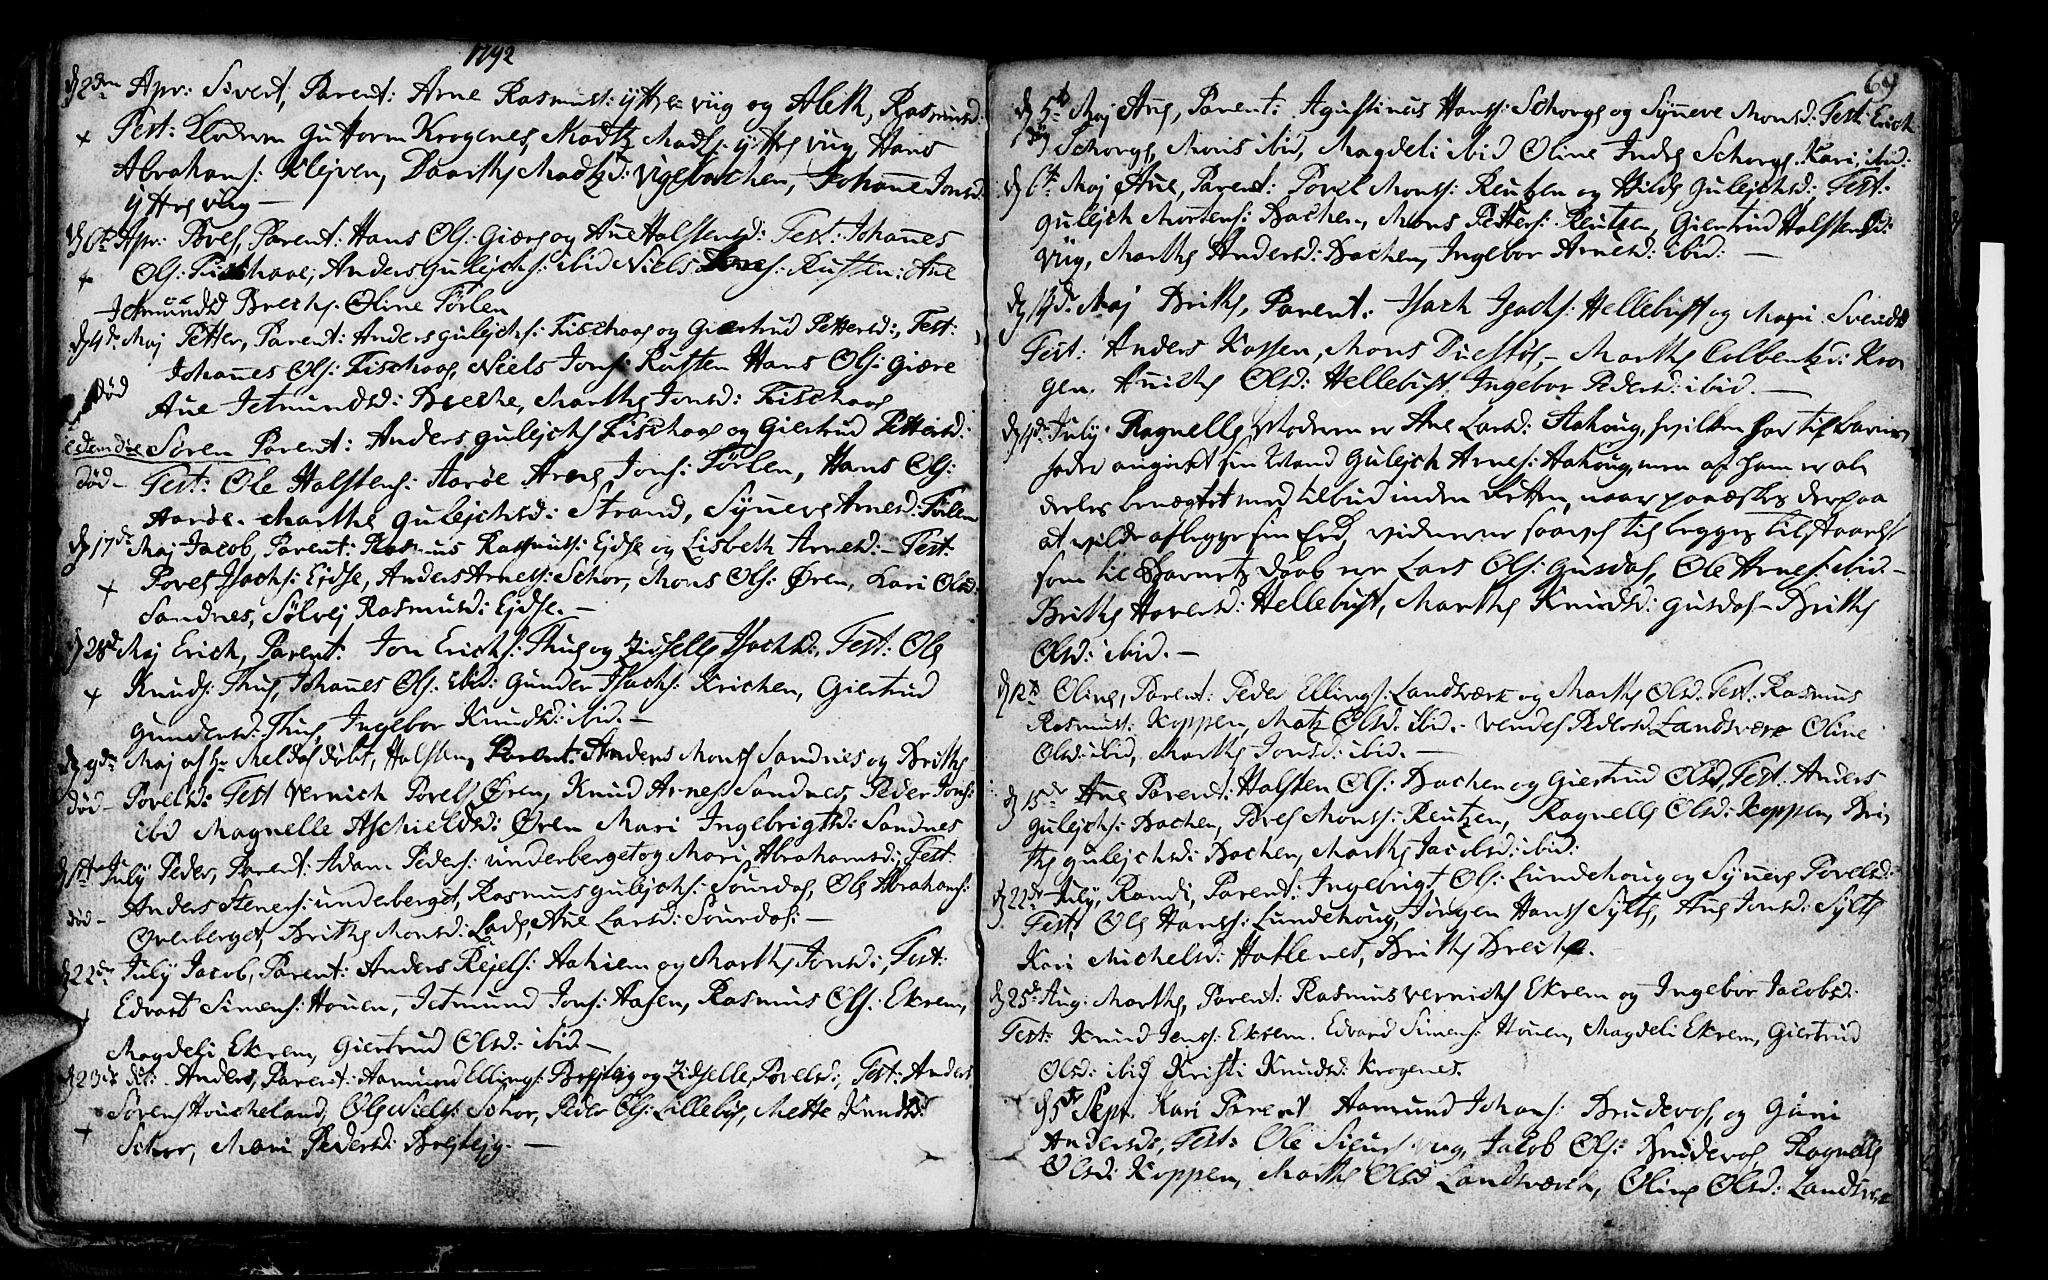 1792
d 2den Apr: Sivert, Parent: Arne Rasmus: yttre viig og Aleth, Rasmusd:
+ Test: Guttorm Krogenes, Madtz Mads: yttre viig Hans
Abrahams: Klejven, Marthe Madtzd: Vigebachen, Johanne Jonsd:
yttre viig —
d 6te Apr: Povel, Parent: Hans Ols: Giære og Ane Halstensd: Test: Johannes
+ Ols: Fischaae, Anders Gulejchs: ibid Niels Jons: Rutten: Ane
Jetmundsd Breche. Oline Tørlen
d 4de Maj Petter, Parent: Anders gulejchs: Fischaae og Giertrud Pettersd:, Test:
Johannes Ols: Fischaae, Niels Jons: Rutten Hans Ols: Giære
død Ane Jetmundsd: Breche, Marthe Jonsd: Fischaae
eodem die Søren Parent: Anders gulejchs Fischaae og Giertrud Pettersd:
død — Test: Ole Halstens: Aarøe Arne Jons: Tørlen, Hans Ols:
Aarøe. Marthe gulejchsd: Strand, Synneve Arnesd: Tørlen
d 17de Maj Jacob, Parent: Rasmus Rasmus: Ejdse og Lisbeth Arnesd: — Test:
+ Povel Isachs: Ejdse, Anders Arnes: Schor, Mons Ols: Øren, Kari Olsd:
Sandnes, Sølvej Rasmusd: Ejdse. —
d 28de Maj Erich, Parent: Jon Erichs: Thue og Zidselle Isachsd:, Test: Ole
+ Knuds: Thue, Johannes Ols: ibid: Gunder Isachs: Krichen, Giertrud
gundersd: Thue, Ingebor Knudsd: ibid. —
d 9de Maj af Hr Meldal døbt, Halsten, Parent: Anders Mons Sandnes og Brithe
død — Povelsd: Test Vernich Povels Øren, Knud Arnes Sandnes, Peder Jons:
ibid Magnelle Aschielsd: Øren Mari Ingebrigtsd: Sandnes
d 1ste July Peder, Parent: Adam Peders: underberget og Mari Abrahamsd:, Test:
Anders Steners: underberget, Rasmus gulejchs: Sourdal, Ole Abrahams:
død — Overberget, Brithe Monsd: Lade, Ane Larsd: Sourdal: —
d 22de July Jacob, Parent: Anders Rejels: Aahiem og Marthe Jonsd:, Test:
+ Edvard Simens: Houen, Jetmund Jons: Aasen, Rasmus Ols: Ekrem,
Magdeli Ekrem, Giertrud Olsd: ibid —
d 23de dit: Anders, Parent: Aamund Ellings: Brejtejg og Zidselle Povelsd:, Test: Anders
Sørens Houcheland, Ole Niels: Schor, Peder Ols: Lillebøe, Mette Knudsd:
+ Schor, Mari Pedersd: Brejtejg. —
69
d 5te Maj Ane, Parent: Agustinus Hans: Schorge og Synneve Monsd: Test: Erich
Schorge, Moris ibid, Magdeli ibid Oline Indre Schorge. Kari, ibid:
d 6te Maj Ane, Parent: Povel Mons: Reutzen og Hilde gulejchsd: Test:
gulejch Mortens: Bachen, Mons Petters: Reutzen, Giertrud Halstensd:
Viig, Marthe Andersd: Bachen, Ingebor Arnesd: ibid: —
d 19de Maj Brithe, Parent: Isach Isachs: Hellebust og Mari Svends
Test: Anders Kossen, Mons Duestøl, — Marthe Colbentzd: Kro
gen. Aniche Olsd: Hellebust Ingebor Pedersd: ibid. —
d 1ste July. Ragnelle, Moderen er Ane Larsd: Aahoug, hvilken har til Barne
fader angivet sin Mand Gulejch Arnes: Aahoug, men af ham er al
deeles benægtet med tilbud inden Retten, naar paaæskes derpaa
at vilde aflegge sin Eed, viderer saavel til begges tilstaaelse
som til Barnets daab er Lars Ols: Gusdal, Ole Arnes: ibid. —
Brithe Hoversd: Hellebust, Marthe Knudsd: gusdal — Brithe
Olsd: ibid. —
d 12te Oline, Parent: Peder Ellings: Landsværk og Marthe Olsd: Test: Rasmus
Rasmus: Koppen, Matz Olsd: ibid. — Vendel Pedersd: Landsværk Oline
Olsd: ibid, Marthe Jonsd: ibid. —
d 15de Ane Parent: Halsten Ols: Bachen og Giertrud Olsd, Test: Anders
Gulejchs: Bachen, Povel Mons: Reutzen, Ragnelle Olsd: Koppen, Bri,
the gulejchsd: Bachen, Marthe Jacobsd: ibid:
d 22de July, Randi, Parent: Ingebrigt Ols: Lundehoug og Synneve Povelsd:
Test: Ole Hans: Lundehoug, Jørgen Hans Sylte, Ane Jonsd: Sylte
Kari Michelsd: Hatlenes, Brithe Breite.
d 25de Aug: Marthe, Parent: Rasmus Vernichs Ekrem og Ingebor Jacobsd:
Test: Knud Jens: Ekrem. Edvard Simens: Houen, Magdeli Ekrem, Giertrud
Olsd: ibid Kristi Knudsd: Krogenes.
d 5te Sepr. Kari Parent Aamund Johans: Brudevol, og Guri
Andersd:, Test: Ole Siurs Viig, Jacob Ols: Brudevol Ragnelle
Olsd: Koppen, Marthe Olsd Landsværch, Oline Olsd: Landsvæ